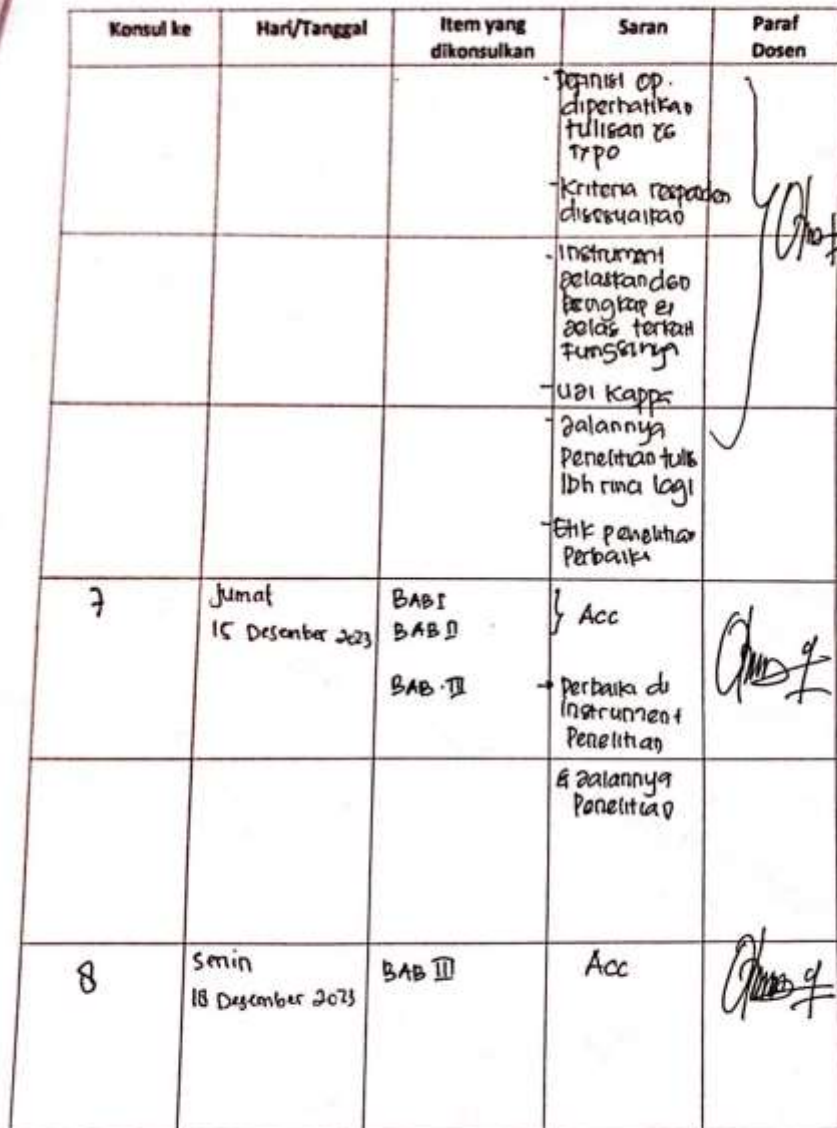 Konsul ke Hari/Tanggal Item yang dikonsulkan Saran Paraf Dosen
- Definisi op.
diperhatikan
tulisan yg
Typo
- Kriteria responden
disesuaikan
- Instrument
jelaskan dgn
lengkap &
jelas terkait
Fungsinya
- Uji Kappa
- Jalannya
Penelitian tulis
lbh rinci lagi
- Etik penelitian
Perbaiki
7 Jumat BAB I } Acc
15 Desember 2023 BAB II
BAB III → Perbaiki di
Instrument
Penelitian
& Jalannya
Penelitian
8 Senin BAB III Acc
18 Desember 2023